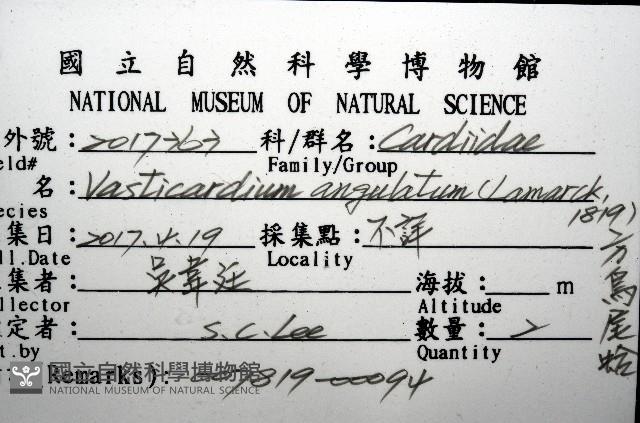 國立自然科學博物館
NATIONAL MUSEUM OF NATURAL SCIENCE
外號: 科/群名: Cardiidae
eld# Family/Group
名: Vasticardium angulatum (Lamarck, 1819)
ecies
集日: 2017.4.19 採集點: 不詳
ll.Date Locality
集者: 吳韋廷 海拔: m
llector Altitude
定者: S.C.Lee 數量: 2
t.by Quantity
Remarks): 819-00094
鳥尾蛤
國立自然科學博物館
NATIONAL MUSEUM OF NATURAL SCIENCE